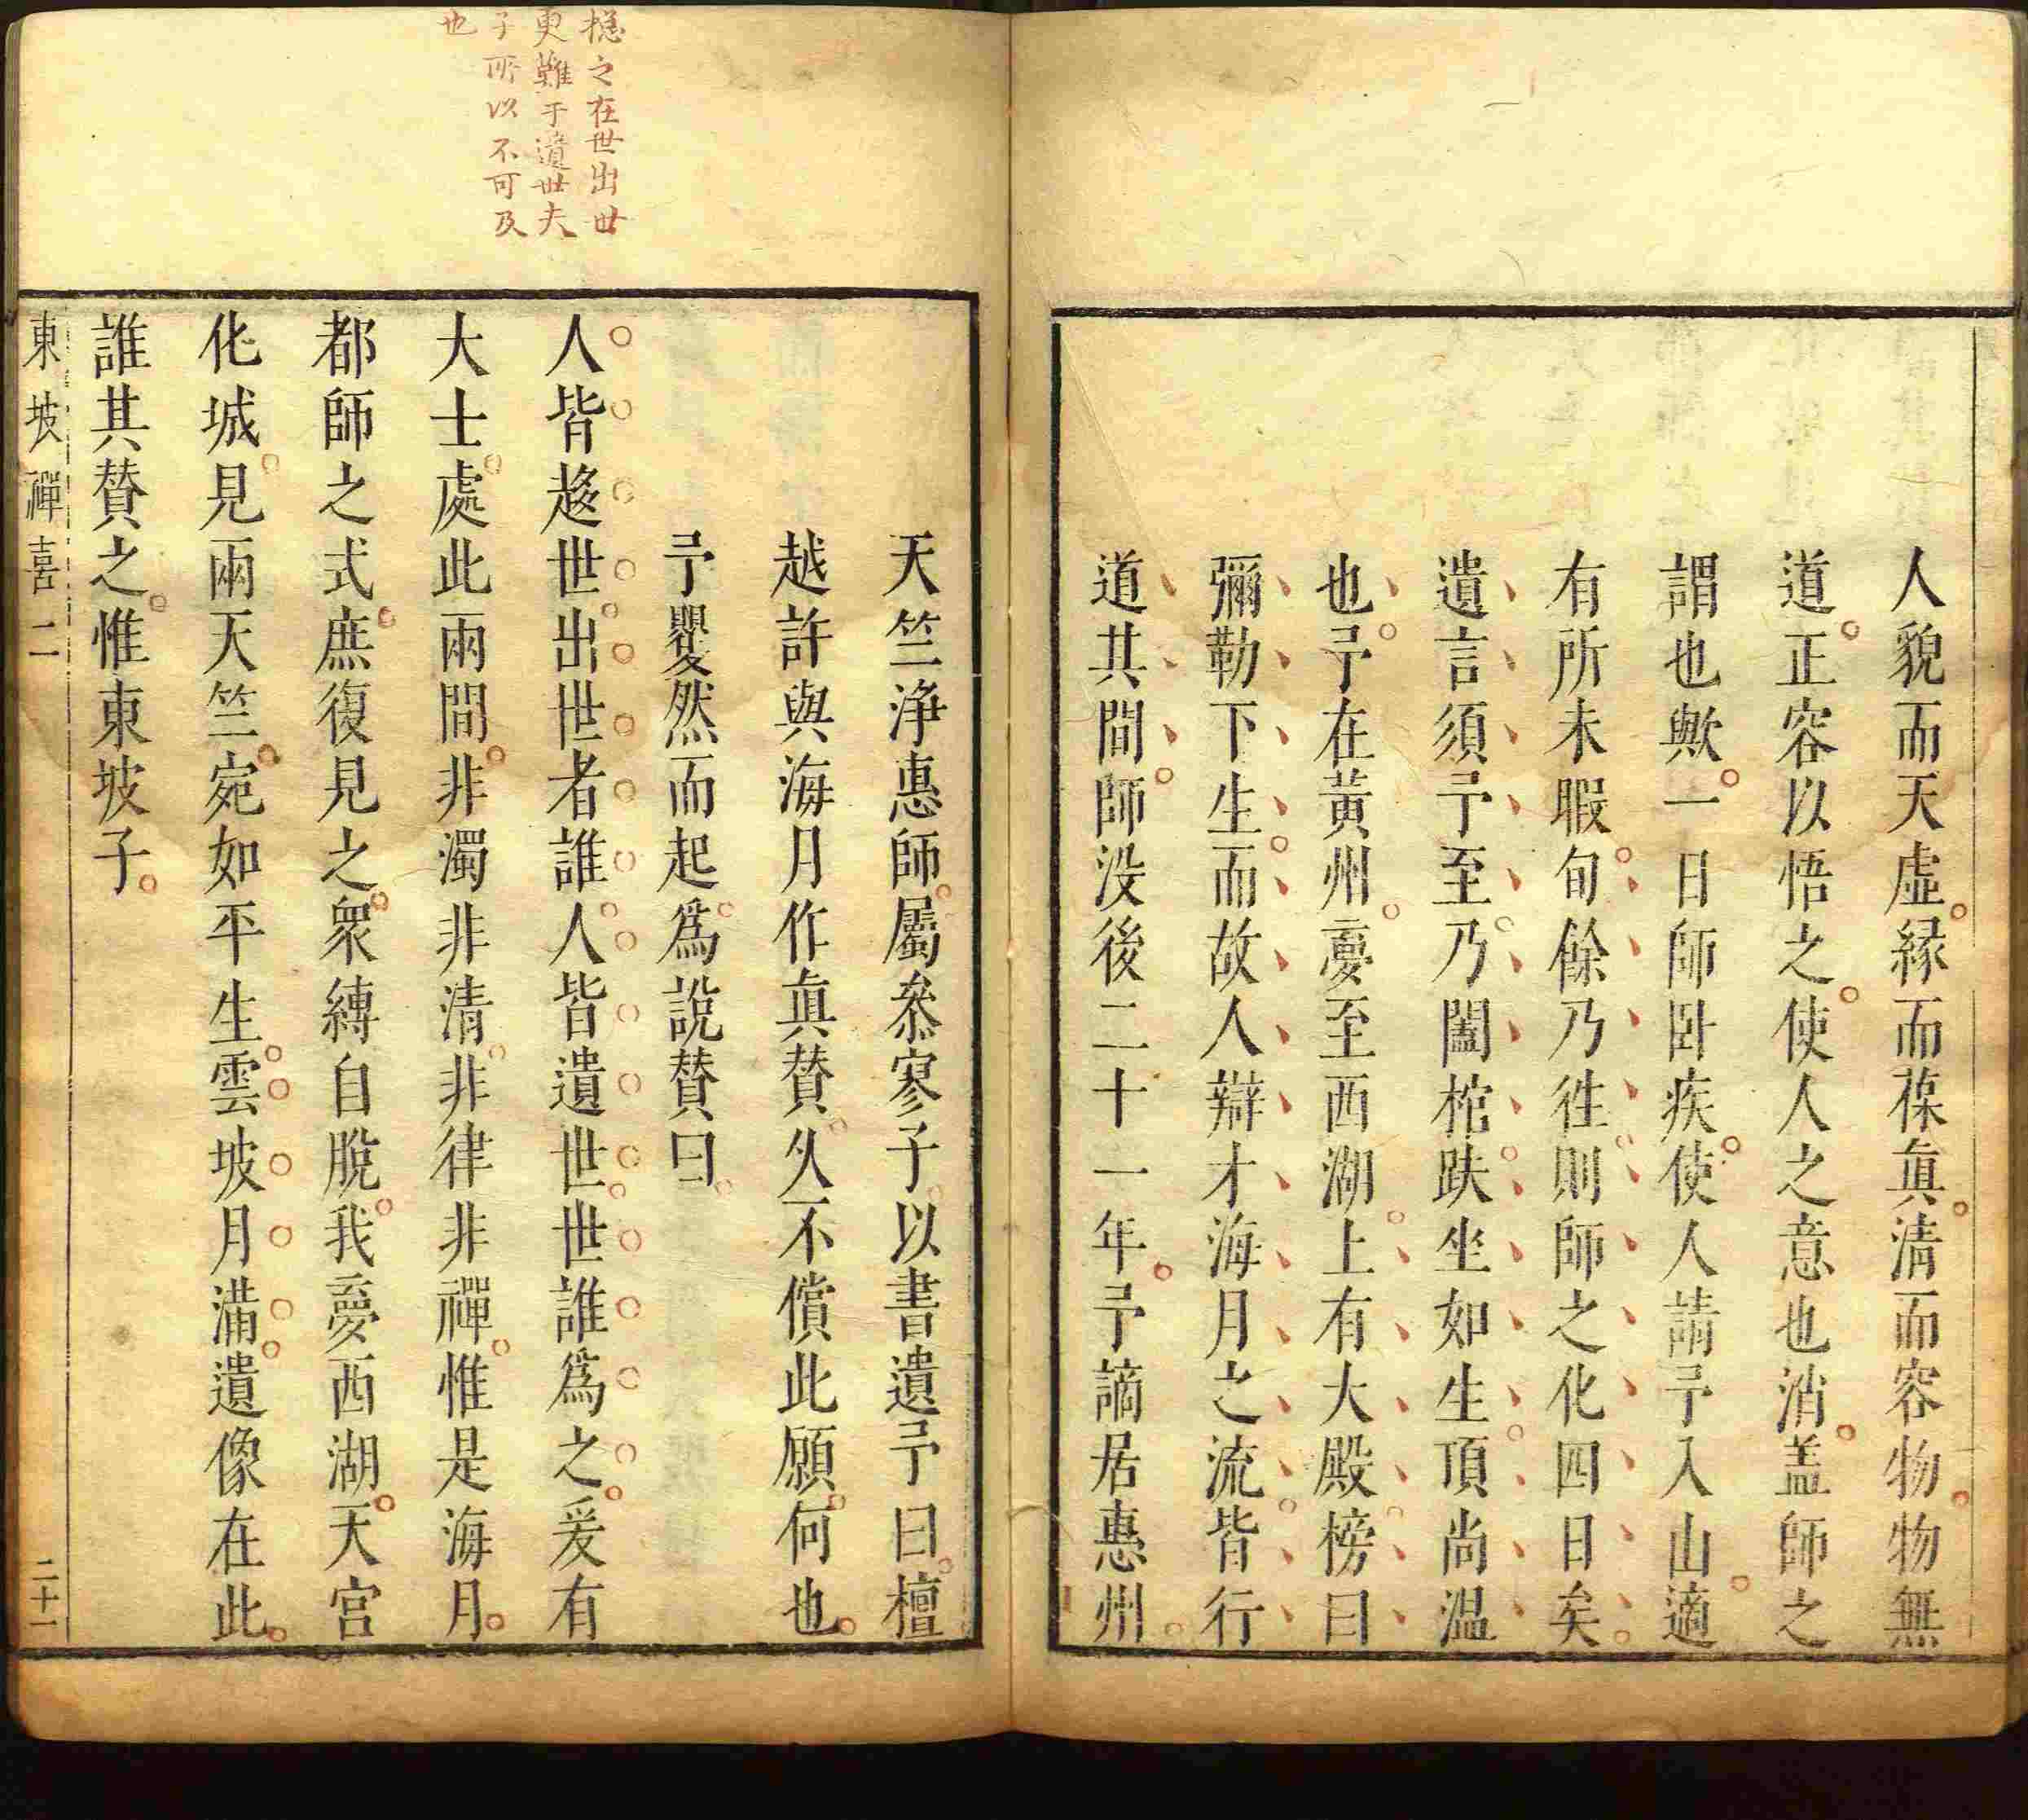 人貌而天虛緣而葆眞清而容物物無
道正容以悟之使人之意也消盖師之
謂也歟一日師卧疾使人請予入山適
有所未暇旬餘乃徃則師之化四日矣
遺言須予至乃闔棺趺坐如生頂尚温
也予在黃州夢至西湖上有大殿榜曰
彌勒下生而故人辯才海月之流皆行
道其間師没後二十一年予謫居惠州
天竺淨惠師屬叅寥子以書遺予曰檀
越許與海月作眞賛久不償此願何也
予矍然而起爲說賛曰
人皆趍世出世者誰人皆遺世世誰爲之爰有
大士處此兩間非濁非清非律非禪惟是海月
都師之式庶復見之衆縛自脫我夢西湖天宫
化城見兩天竺宛如平生雲坡月滿遺像在此
誰其賛之惟東坡子
東坡禪喜二 二十一
摠之在世出世
更難于遺世夫
子所以不可及
也